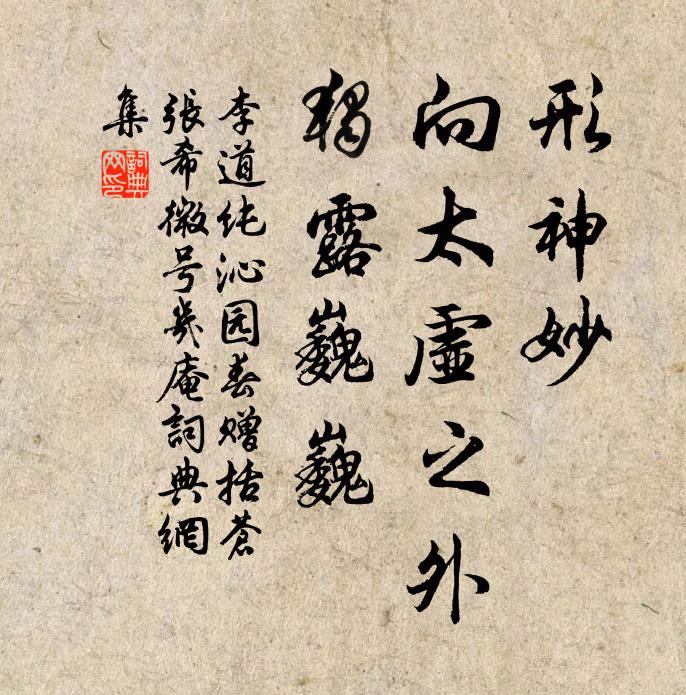 形神妙
向太虚之外
獨露巍巍
李道纯沁园春赠括蒼
張希微号幾庵詞典網
集
詞典网印